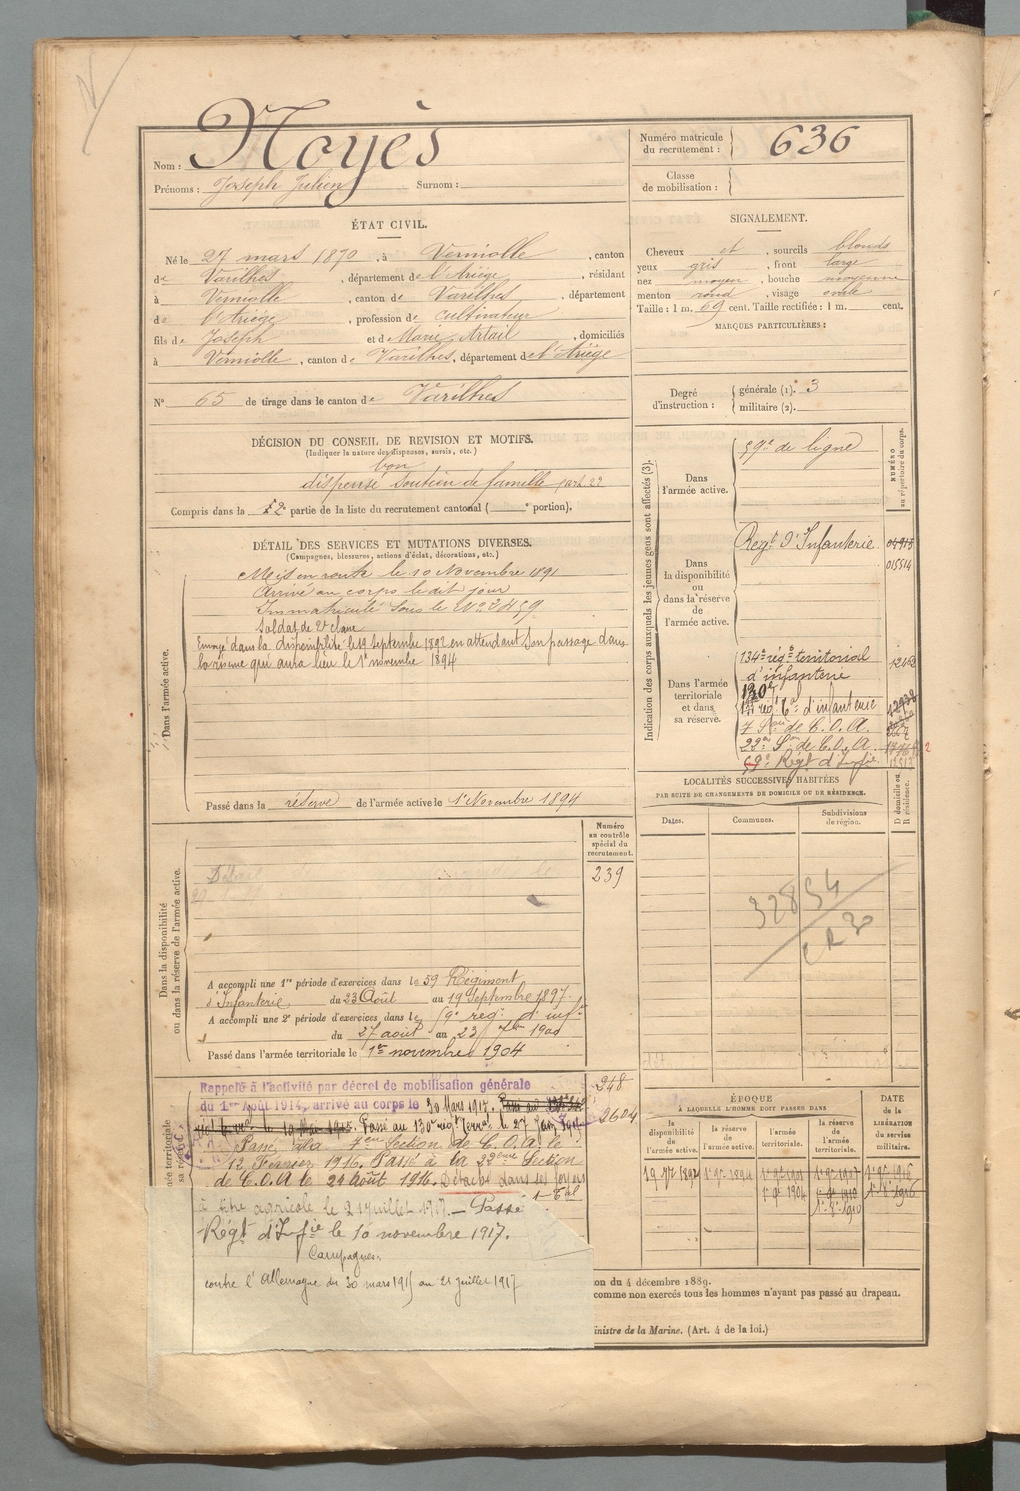 Nom : Noyès
Prénoms : Joseph Julien Surnom :
Numéro matricule du recrutement : 636
Classe de mobilisation :
ÉTAT CIVIL.
Né le 27 mars 1870, à Verniolle, canton
de Varilhes, département de l'Ariège, résidant
à Verniolle, canton de Varilhes, département
de l'Ariège, profession de cultivateur
fils de Joseph et de Marie Artail, domiciliés
à Verniolle, canton de Varilhes, département de l'Ariège
N° 65 de tirage dans le canton de Varilhes
SIGNALEMENT.
Cheveux et, sourcils blonds
yeux gris, front large
nez moyen, bouche moyenne
menton rond, visage ovale
Taille : 1 m. 69 cent. Taille rectifiée : 1 m. cent.
MARQUES PARTICULIÈRES :
Degré d'instruction : générale (1). 3
militaire (2).
DÉCISION DU CONSEIL DE REVISION ET MOTIFS.
(Indiquer la nature des dispenses, sursis, etc.)
bon
dispensé soutien de famille art. 22
Compris dans la 2e partie de la liste du recrutement cantonal ( e portion).
DÉTAIL DES SERVICES ET MUTATIONS DIVERSES.
(Campagnes, blessures, actions d'éclat, décorations, etc.)
Dans l'armée active.
Mis en route le 10 Novembre 1891
Arrivé au corps le dit jour
Immatriculé sous le N° 2459
Soldat de 2e classe
Envoyé dans la disponibilité le 19 septembre 1892 en attendant son passage dans
la réserve qui aura lieu le 1er novembre 1894
Passé dans la réserve de l'armée active le 1er Novembre 1894
Indication des corps auxquels les jeunes gens sont affectés (3).
NUMÉRO au répertoire du corps.
Dans l'armée active.
59e de ligne
Dans la disponibilité ou dans la réserve de l'armée active.
Regt d'Infanterie
015514
Dans l'armée territoriale et dans sa réserve.
134e régt territorial
d'infanterie
130e
régt tal d'infanterie
7 Son de C.O.A.
22e Son de C.O.A.
59e Régt d'Infie
LOCALITÉS SUCCESSIVES HABITÉES
PAR SUITE DE CHANGEMENTS DE DOMICILE OU DE RÉSIDENCE.
D domicile ou R résidence.
Dates. Communes. Subdivisions de région.
32854
CR 30
Dans la disponibilité ou dans la réserve de l'armée active.
Numéro au contrôle spécial du recrutement.
239
A accompli une 1re période d'exercices dans le 59 Régiment
d'Infanterie du 23 Août au 19 Septembre 1897.
A accompli une 2e période d'exercices dans le 59e rég. d'inf.
du 27 août au 23 7bre 1900
Passé dans l'armée territoriale le 1er novembre 1904
Rappelé à l'activité par décret de mobilisation générale
du 1er Août 1914, arrivé au corps le 30 Mars 1917. Passé au
Passé au 130e rég. Terral le 27
Passé à la 7eme Section de C.O.A. le
12 Février 1916. Passé à la 22eme Section
de C.O.A le 24 Août 1916. Détaché dans ses foyers
à titre agricole le 21 juillet 1917. — Passé
Régt d'Infie le 10 novembre 1917.
Campagnes.
contre l'Allemagne du 30 mars 1915 au 21 juillet 1917
248
2604
ÉPOQUE
À LAQUELLE L'HOMME DOIT PASSER DANS
la disponibilité de l'armée active.
la réserve de l'armée active.
l'armée territoriale.
la réserve de l'armée territoriale.
DATE de la LIBÉRATION du service militaire.
19 7bre 1892
1er 9bre 1894
1er 9bre 1904
1er 8bre 1910
1er 8bre 1916
on du 4 décembre 1889.
comme non exercés tous les hommes n'ayant pas passé au drapeau.
inistre de la Marine. (Art. 4 de la loi.)